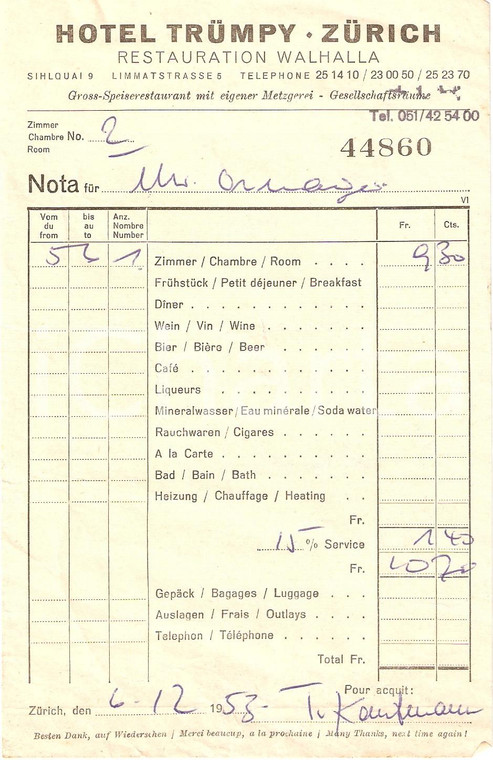 HOTEL TRÜMPY · ZÜRICH
RESTAURATION WALHALLA
SIHLQUAI 9 LIMMATSTRASSE 5 TELEPHONE 25 14 10 / 23 00 50 / 25 23 70
Gross-Speiserestaurant mit eigener Metzgerei - Gesellschaftsräume
Tel. 051/42 54 00
Zimmer
Chambre No. 2
Room
44860
Nota für Mr.
VI
Vom bis Anz. Fr. Cts.
du au Nombre
from to Number
5 6 1 Zimmer / Chambre / Room . . . . 9 30
Frühstück / Petit déjeuner / Breakfast
Diner . . . . . . . . . . .
Wein / Vin / Wine . . . . . . .
Bier / Bière / Beer . . . . . . .
Café . . . . . . . . . . .
Liqueurs . . . . . . . . .
Mineralwasser / Eau minérale / Soda water
Rauchwaren / Cigares . . . . . .
A la Carte . . . . . . . . .
Bad / Bain / Bath . . . . . . .
Heizung / Chauffage / Heating . .
Fr.
15 % Service 1 40
Fr. 10 70
Gepäck / Bagages / Luggage . . .
Auslagen / Frais / Outlays . . . .
Telephon / Téléphone . . . . .
Total Fr.
Pour acquit:
Zürich, den 6-12 1953- T. Kaufmann
Besten Dank, auf Wiedersehen | Merci beaucoup, a la prochaine | Many Thanks, next time again!